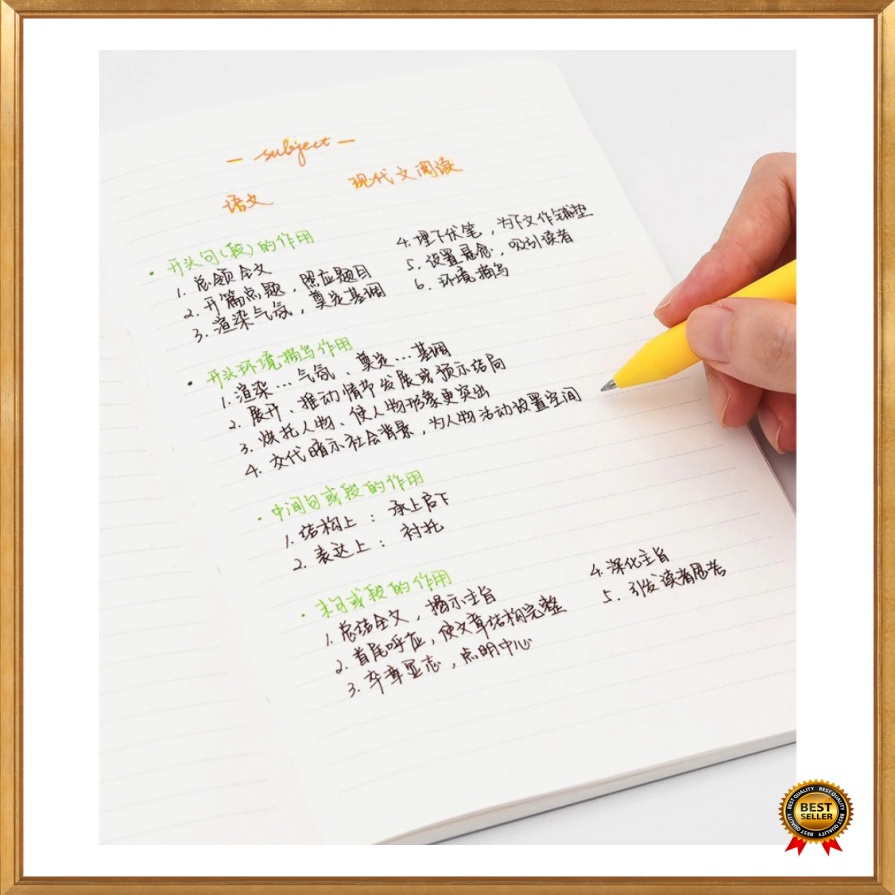 — subject —
语文 现代文阅读
· 开头句(段)的作用
1. 总领全文
2. 开篇点题，照应题目
3. 渲染气氛，奠定基调
4. 埋下伏笔，为下文作铺垫
5. 设置悬念，吸引读者
6. 环境描写
· 开头环境描写作用
1. 渲染…气氛、奠定…基调
2. 展开、推动情节发展或预示结局
3. 烘托人物、使人物形象更突出
4. 交代暗示社会背景，为人物活动设置空间
· 中间句或段的作用
1. 结构上：承上启下
2. 表达上：衬托
· 末句或段的作用
1. 总结全文，揭示主旨
2. 首尾呼应，使文章结构完整
3. 卒章显志，点明中心
4. 深化主旨
5. 引发读者思考
BEST QUALITY BEST QUALITY
BEST
SELLER
BEST QUALITY BEST QUALITY